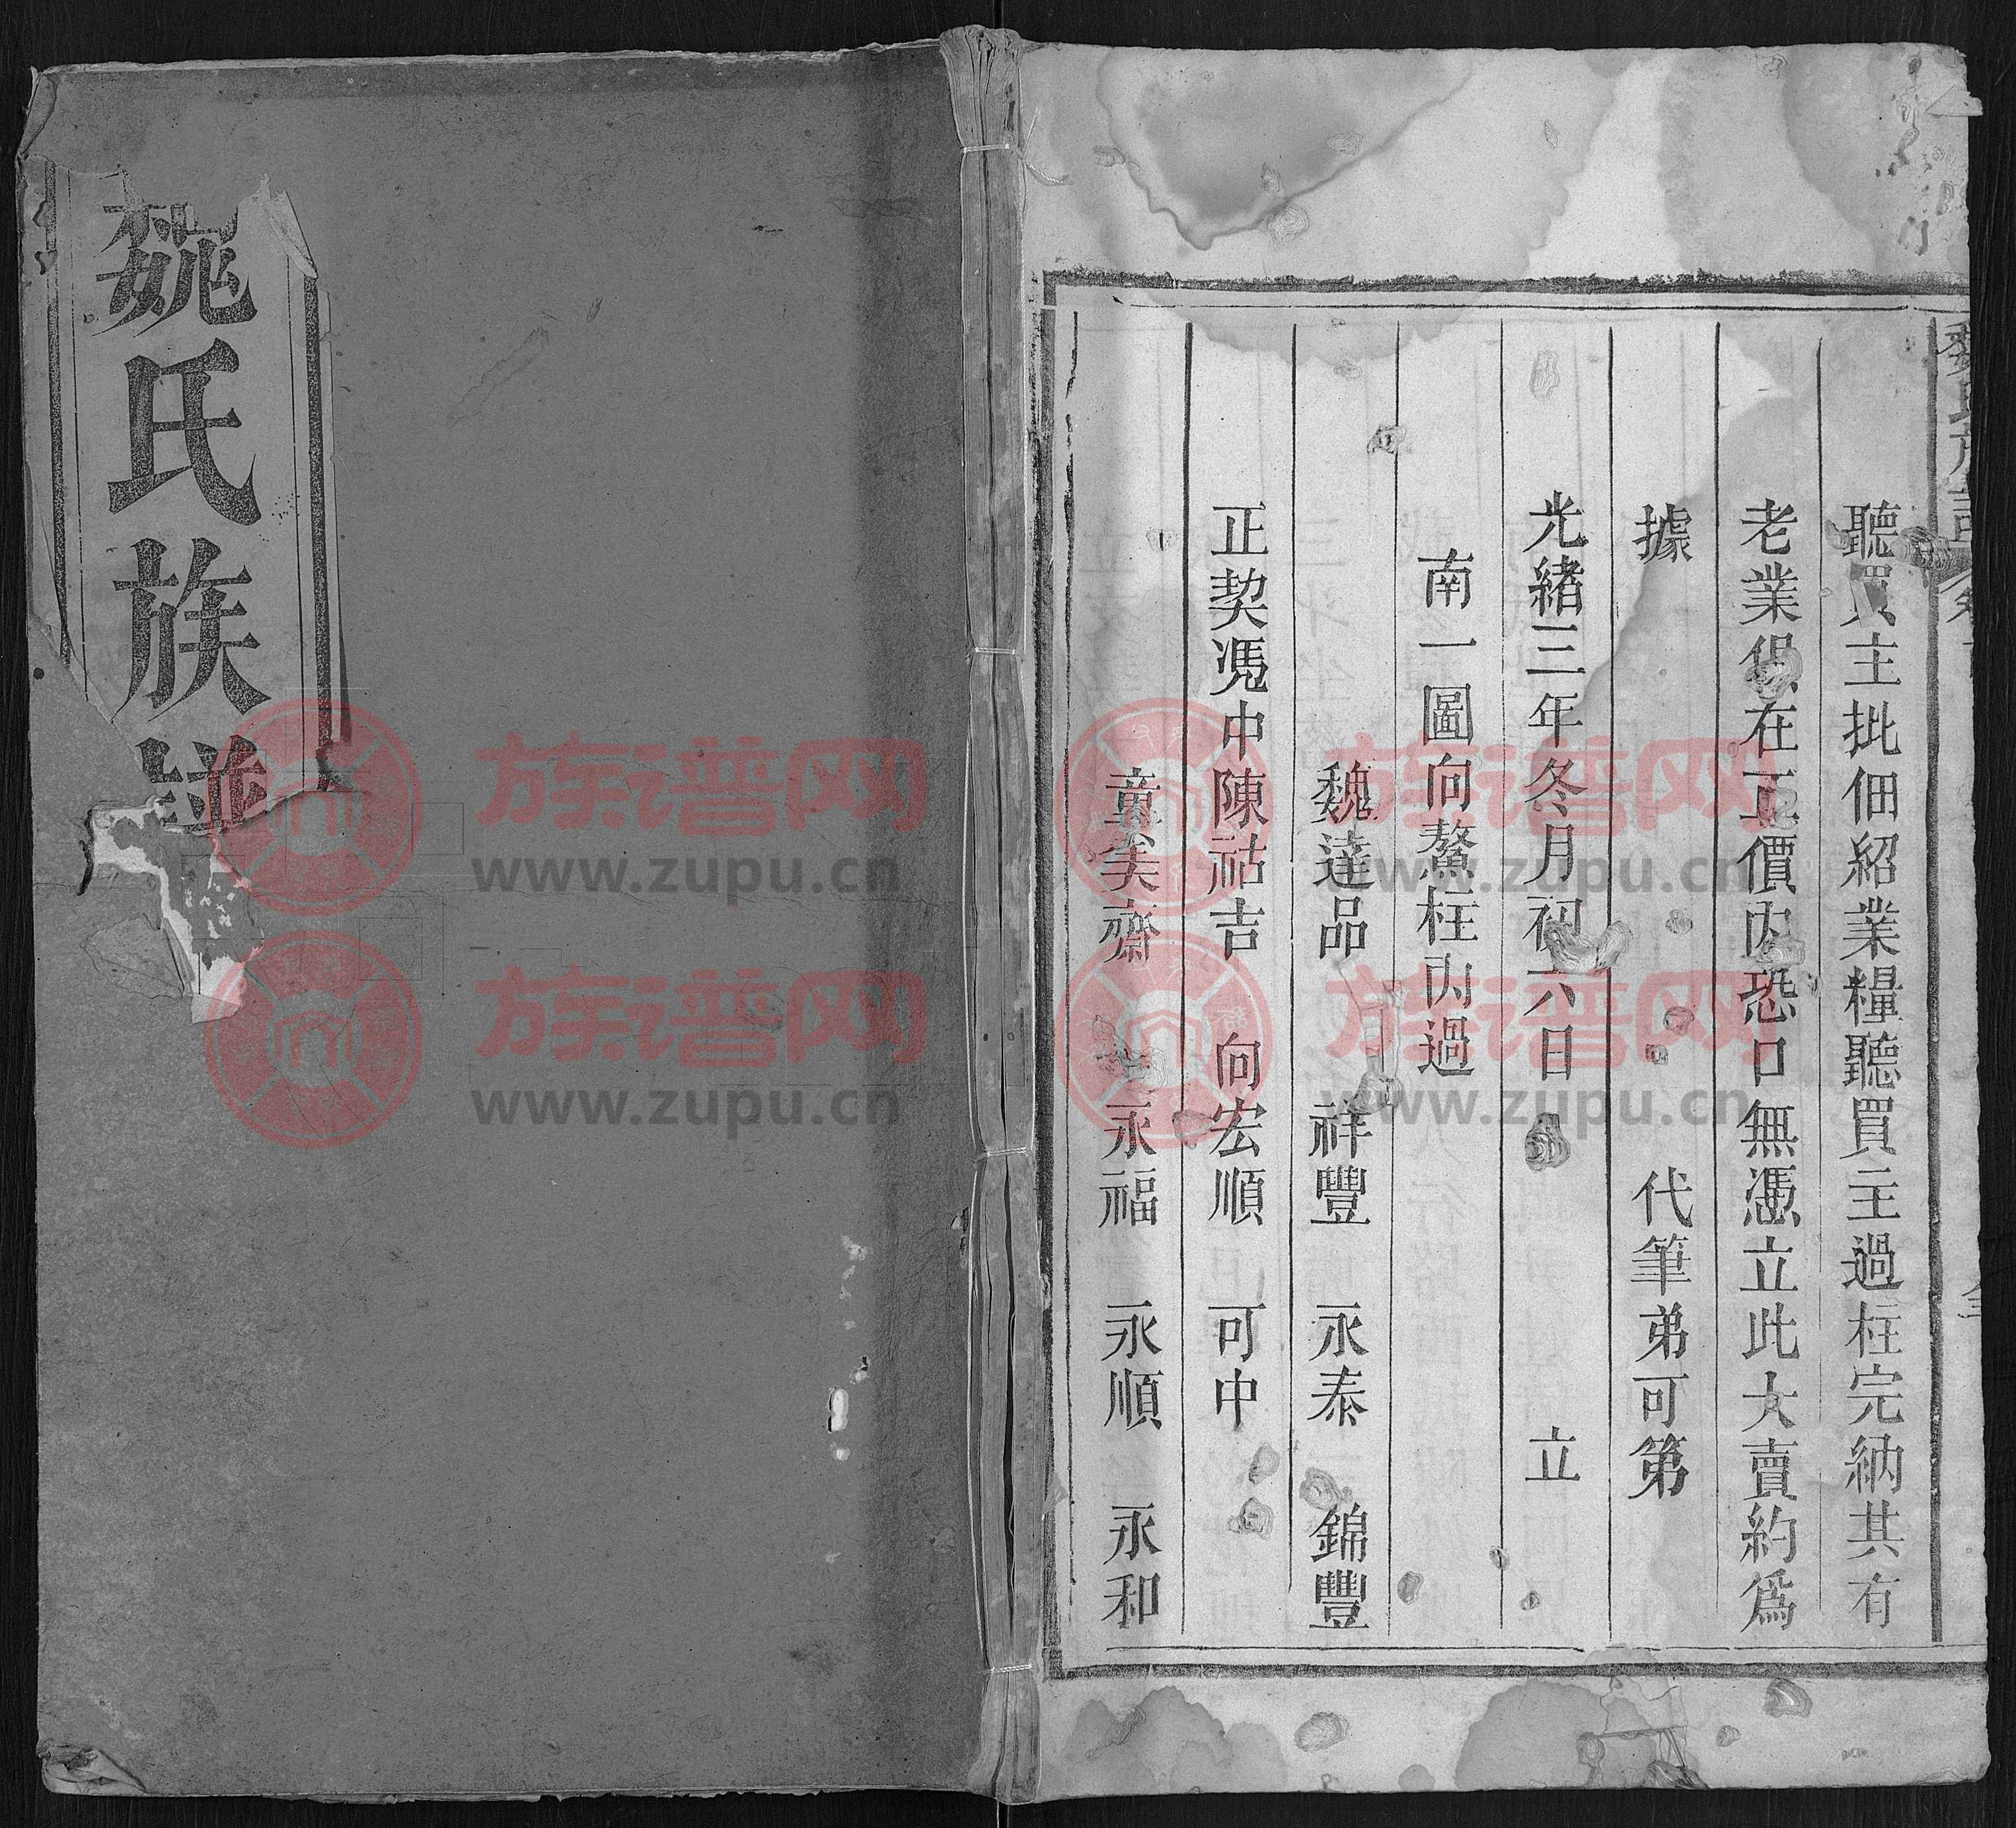 聽買主批佃紹業糧聽買主過柱完納其有
老業俱在正價內恐口無憑立此大賣約爲
據　代筆弟可第
光緒三年冬月初六日　立
南一圖向鰲柱內過
魏達品　祥豐　永泰　錦豐
正契馮中陳祜吉　向宏順　可中
童美齋　永福　永順　永和
魏氏族譜
族谱网
www.zupu.cn
族谱网
www.zupu.cn
族谱网
www.zupu.cn
族谱网
www.zupu.cn